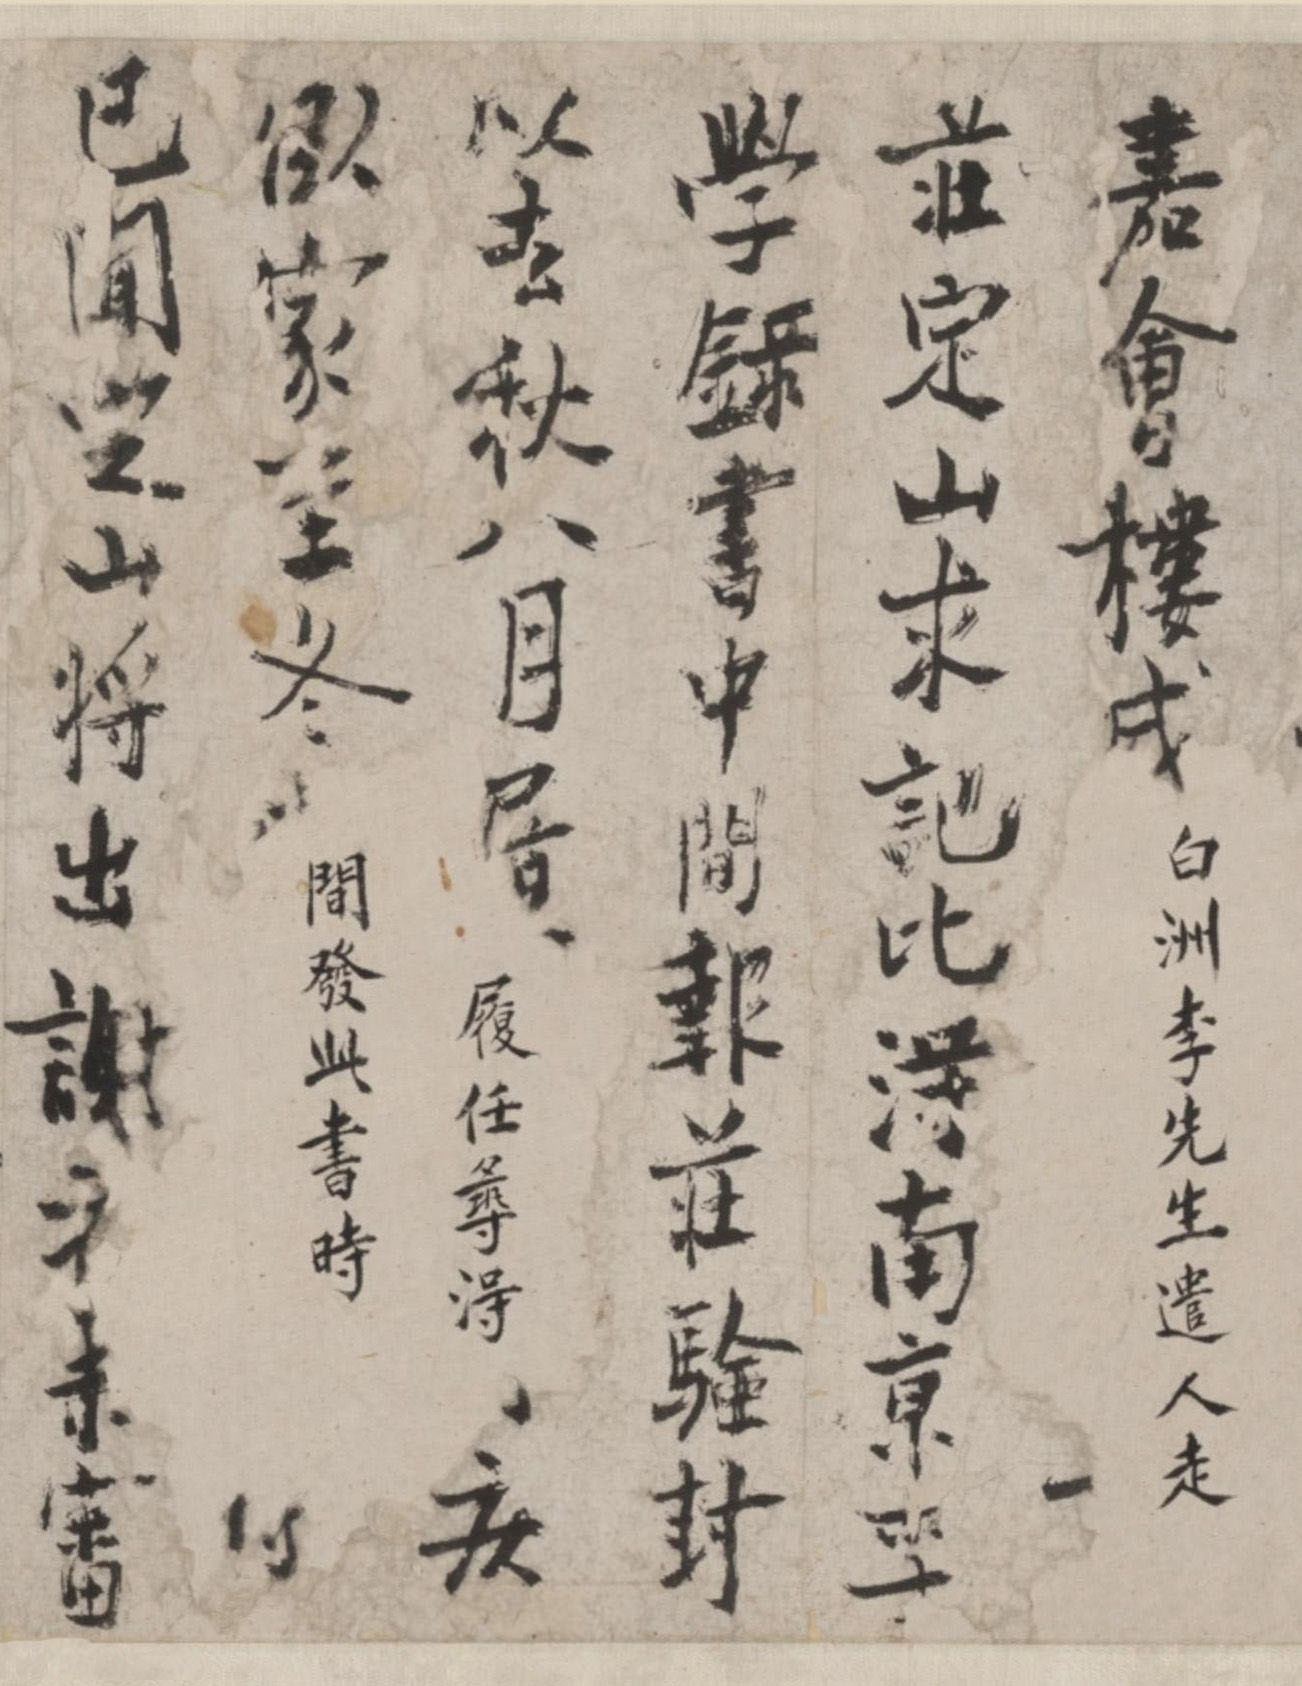 嘉會樓成白洲李先生遣人走
莊定山求記比得南京
學錄書中間報莊驗封
以去秋八月履任尋得疾
臥家至冬間發此書時
已聞定山將出謝未審